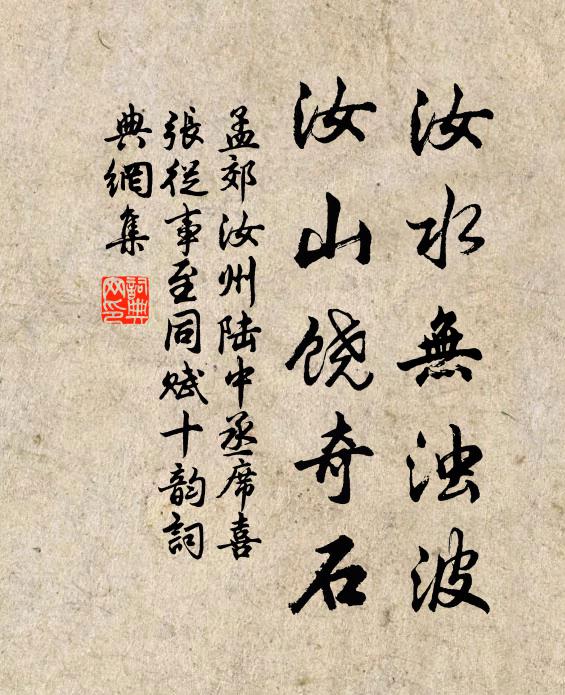 汝水無浊波
汝山饶奇石
孟郊汝州陆中丞席喜
張從事至同赋十韵詞
典網集
詞典网印